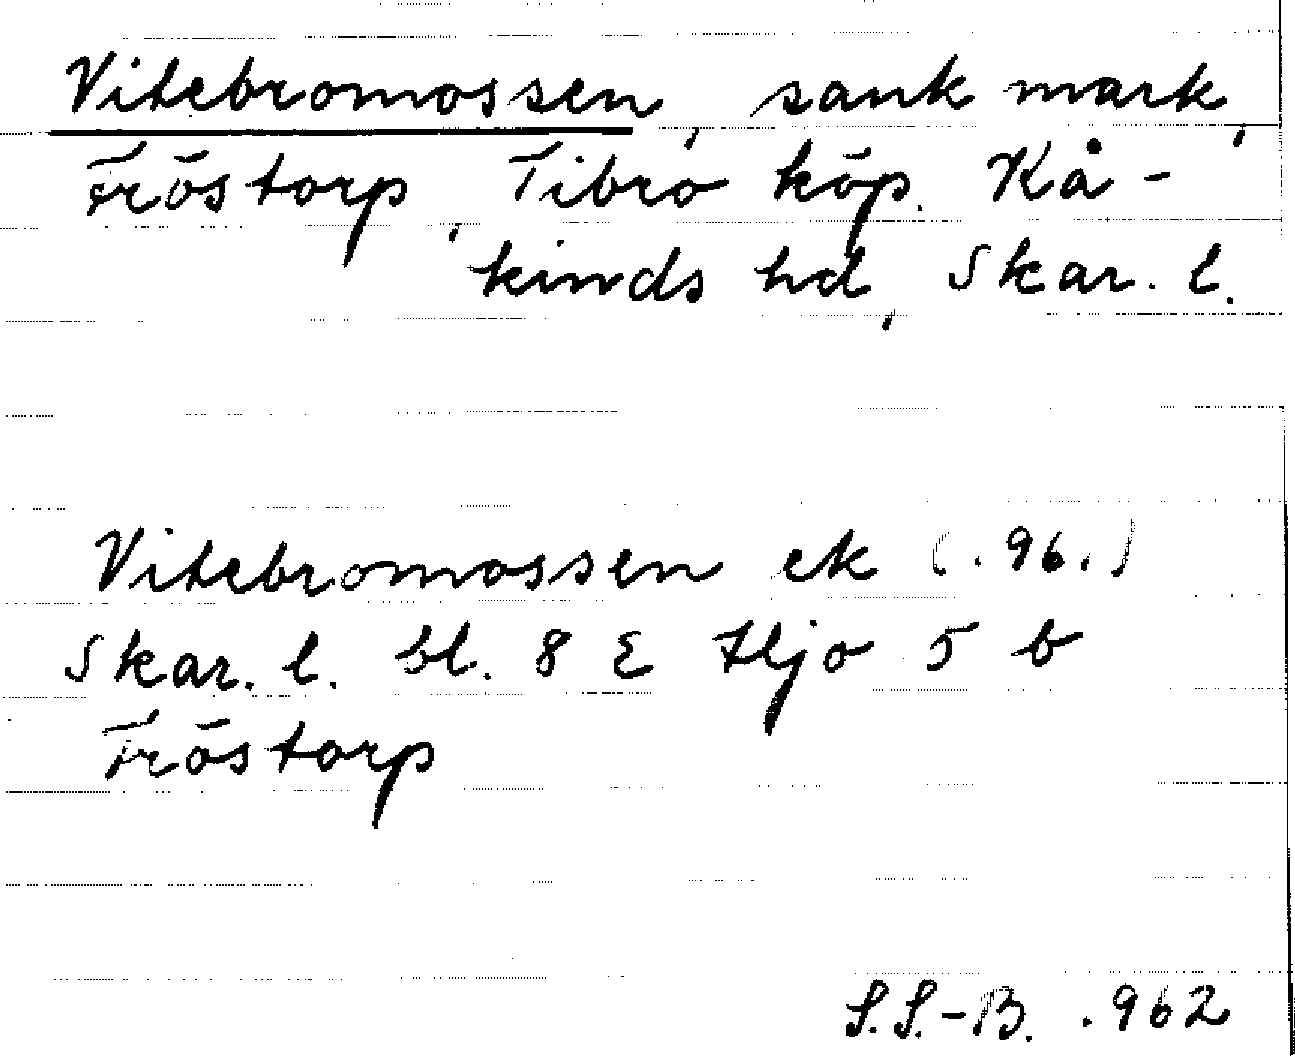 Vitebromossen, sank mark,
Fröstorp, Tibro köp. Kå-
kinds hd, Skar. l.
Vitebromossen ek (.96.)
Skar. l. bl. 8 E Hjo 5 b
Fröstorp
S.S.-B. .962